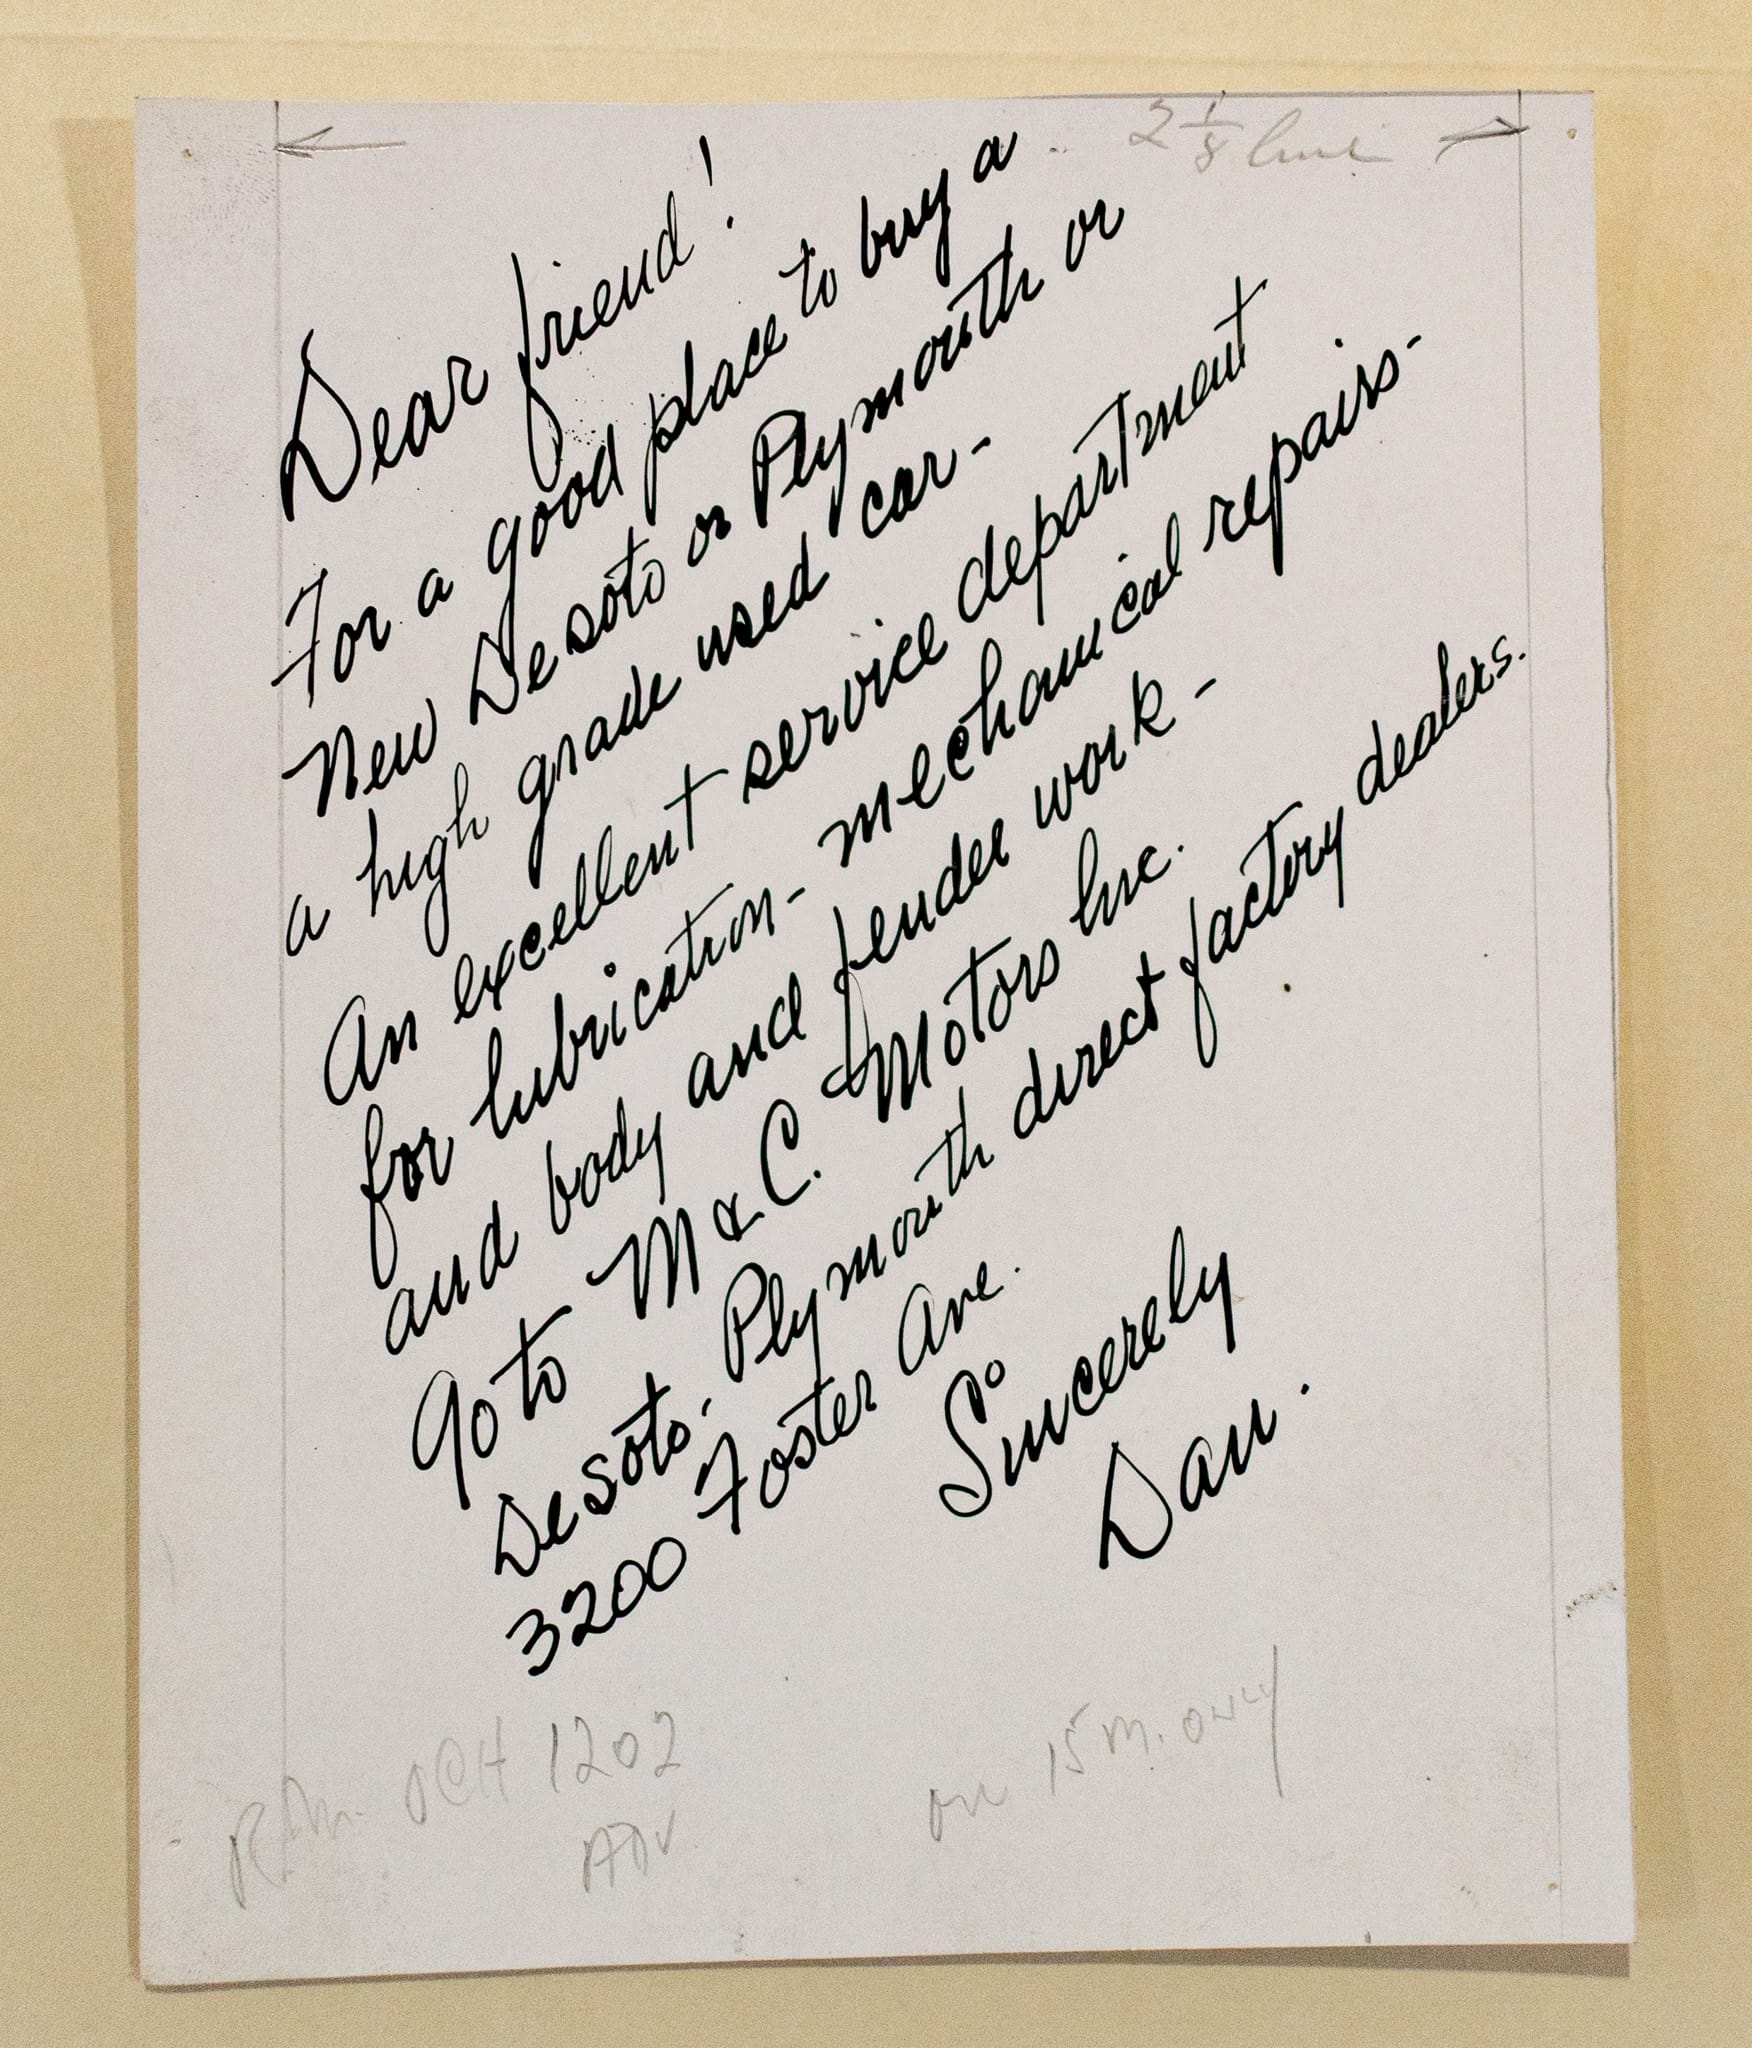 2 1/8
Dear friend!
For a good place to buy a
New De soto or Plymouth or
a high grade used car-
An excellent service department
for lubrication- mechanical repairs-
and body and fender work-
Go to M & C. Motors Inc.
De soto. Plymouth direct factory dealers.
3200 Foster Ave.
Sincerely
Dan.
1202
ADV
on 15 M. only